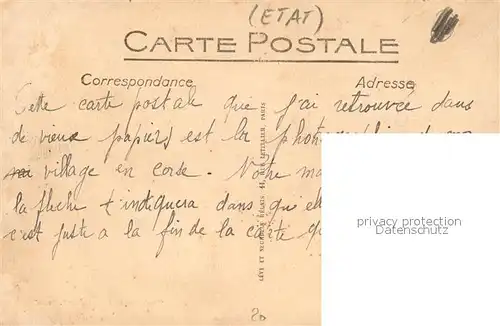 (ETAT)
CARTE POSTALE
Correspondance
Adresse
Cette carte postale que j'ai retrouvée dans
de vieux papiers est la
village en corse. Notre
la fleche t'indiquera dans
c'est juste a la fin de la carte
LÉVY ET NEURDEIN RÉUNIS 44, RUE LETELLIER, PARIS
20
privacy protection
Datenschutz